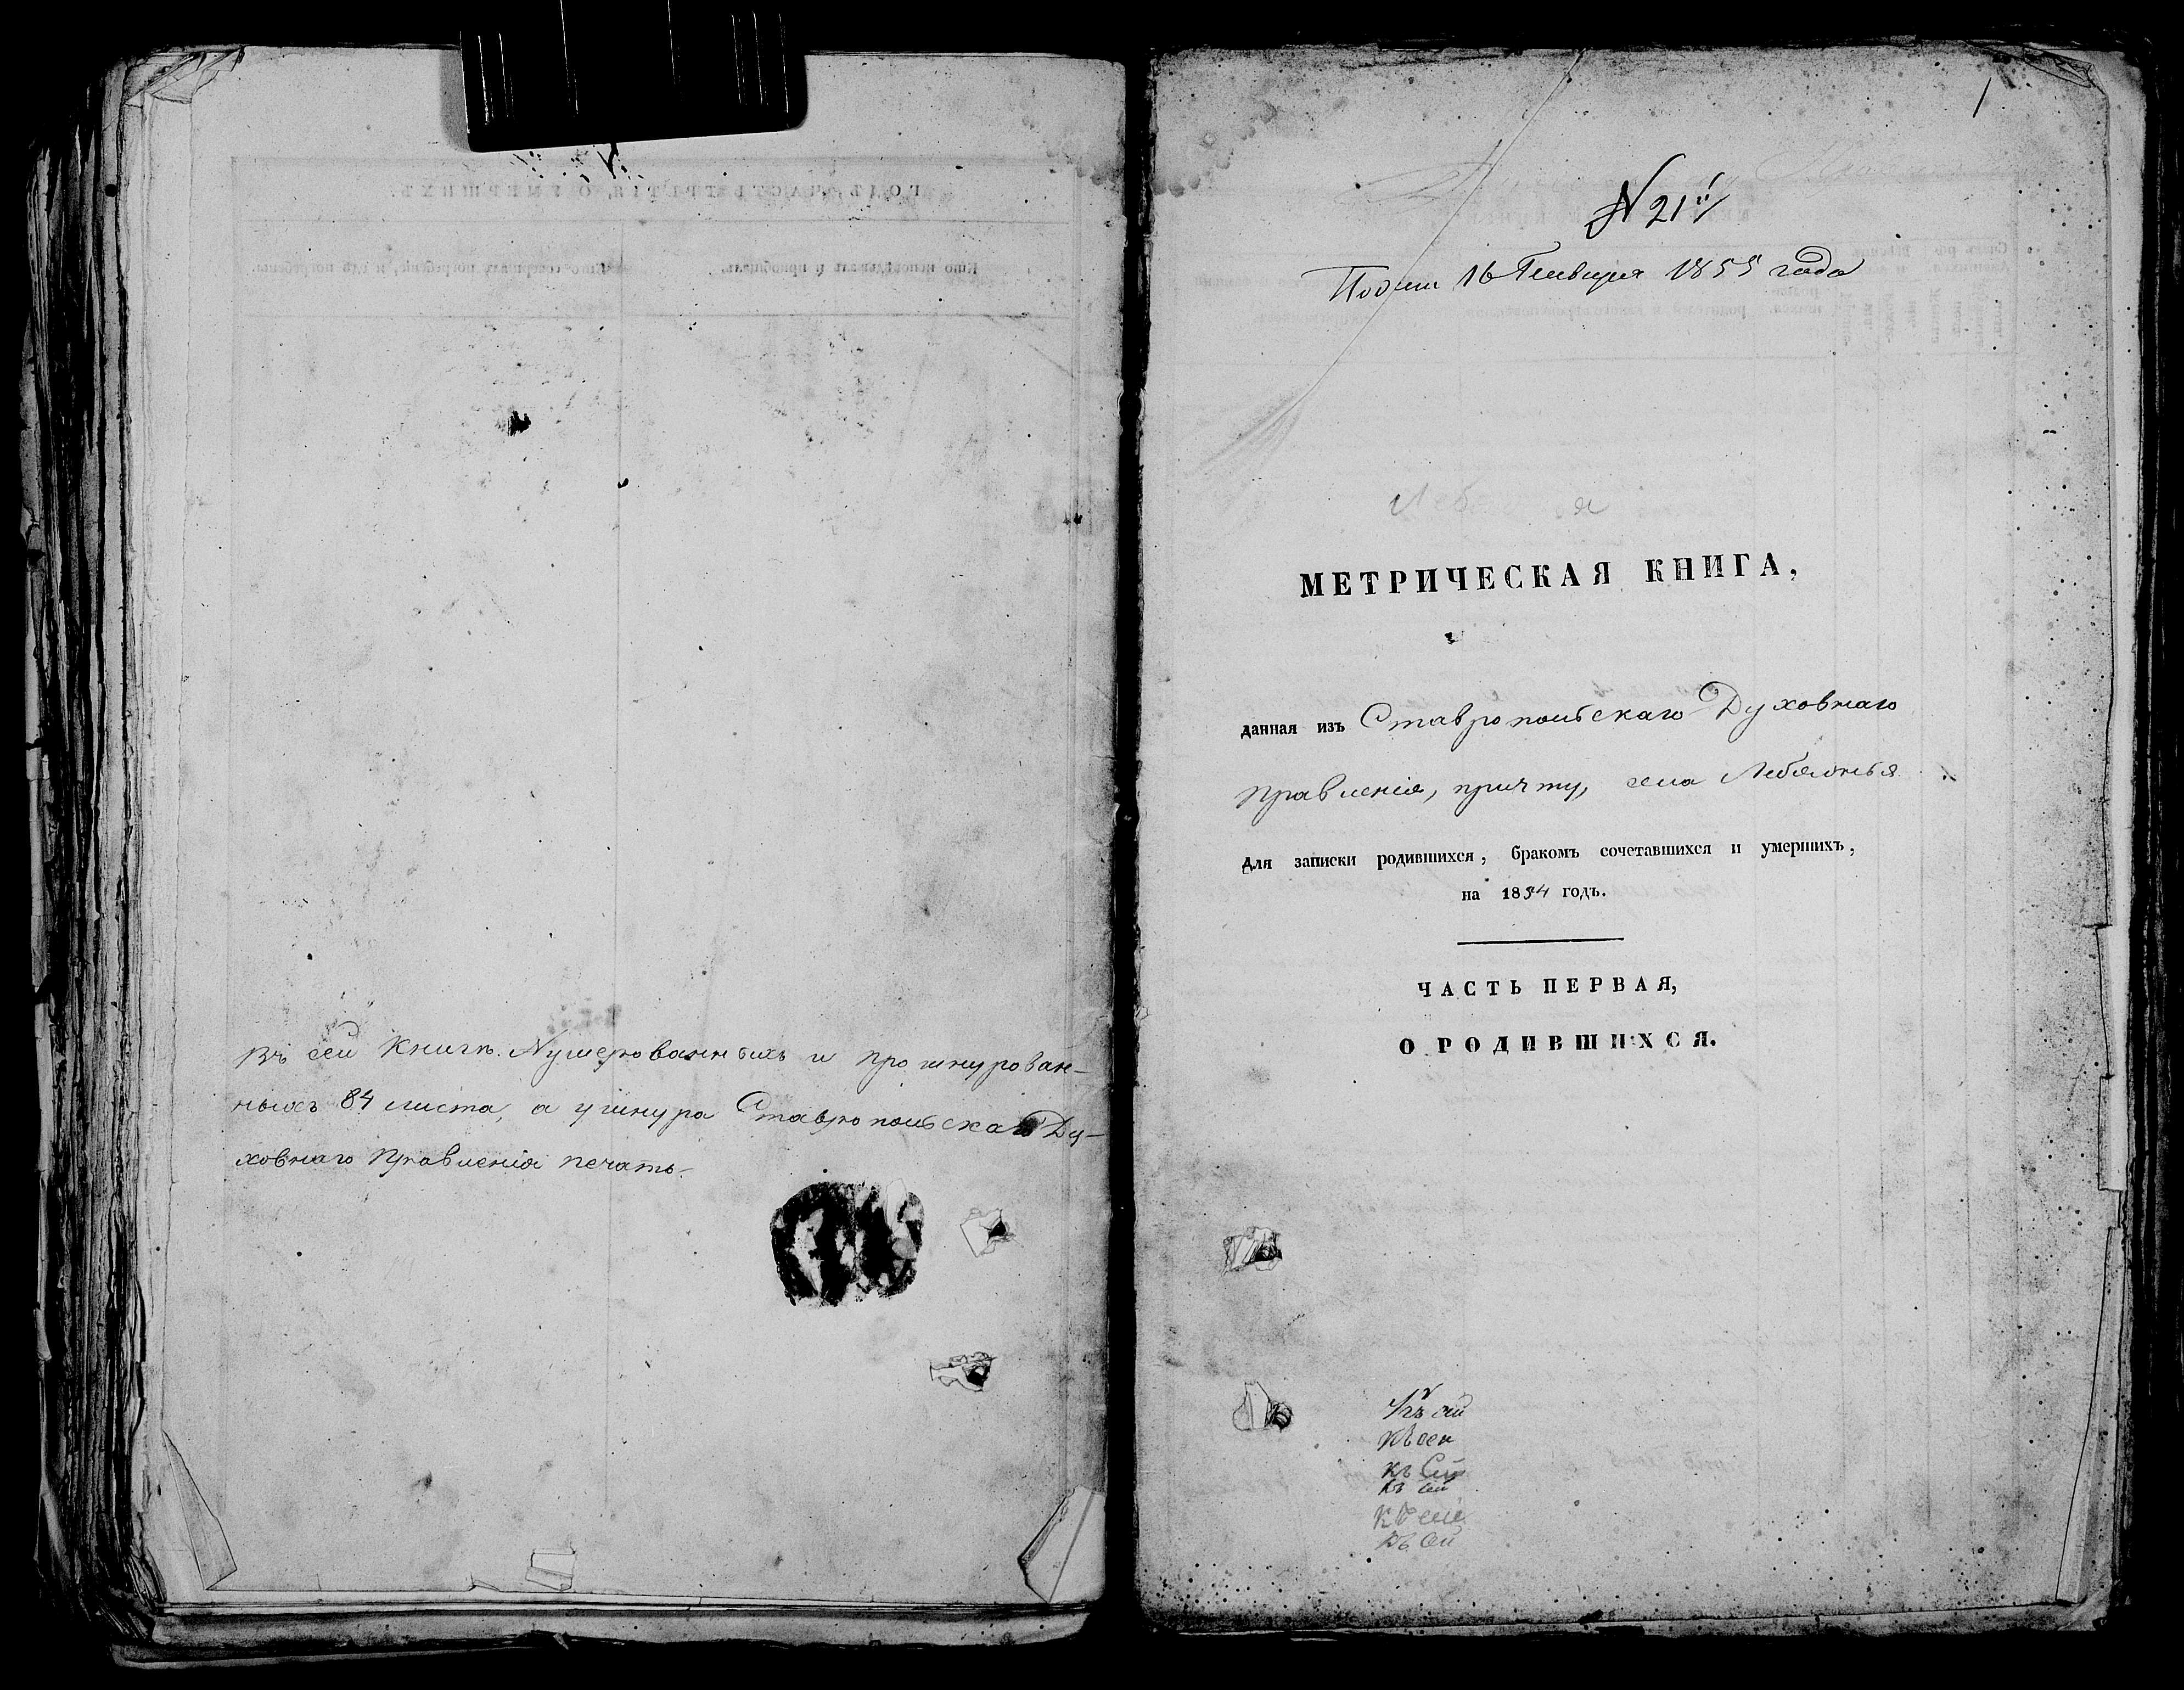 Въ сей Книгѣ Нумерованныхъ и прошнурован-
ныхъ 84 листа, а у шнура Ставропольскаго Ду-
ховнаго Правленія печать.
1
N 21й
16 Генваря 1855 года
МЕТРИЧЕСКАЯ КНИГА,
данная изъ Ставропольскаго Духовнаго
Правленія, причту, села Лебяжья
для записки родившихся, бракомъ сочетавшихся и умершихъ,
на 1854 годъ.
ЧАСТЬ ПЕРВАЯ,
О РОДИВШИХСЯ.
къ сей
къ сей
къ сей
къ сей